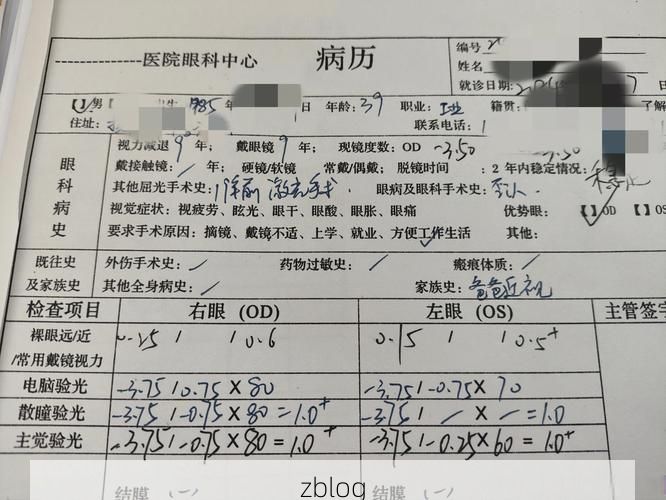 医院眼科中心 病历
编号
姓名
就诊日期:
男 出生 1985 年 日 年龄:39 职业:工业 籍贯: 了解
住址: 联系电话:1
视力减退 9 年; 戴眼镜 9 年; 现镜度数: OD -3.50 -3.50
眼科病史
戴接触镜: / 年; 硬镜/软镜 常戴/偶戴; 脱镜时间 : 2 年内稳定情况: 稳定
其他屈光手术史: 激光手术 眼病及眼科手术史:
视觉症状: 视疲劳、眩光、眼干、眼酸、眼胀、眼痛 优势眼: 【 】OD 【 】OS
要求手术原因: 摘镜、戴镜不适、上学、就业、方便工作生活 其他:
既往史 外伤手术史: / 药物过敏史: / 瘢痕体质: /
及家族史 其他全身病史: / 家族史: 爸爸近视
检查项目 右眼 (OD) 左眼 (OS) 主管签字
裸眼远/近 0.25 / / 0.6 0.15 / / 0.5+
/常用戴镜视力
电脑验光 -3.75 / 0.75 X 80 -3.75 / -0.75 X 70
散瞳验光 -3.75 / -0.75 X 80 = 1.0+ -3.75 / / X / = 1.0
主觉验光 -3.75 / -0.75 X 80 = 1.0+ -3.75 / -0.25 X 60 = 1.0+
结膜 (一) 结膜 (一)
zblog